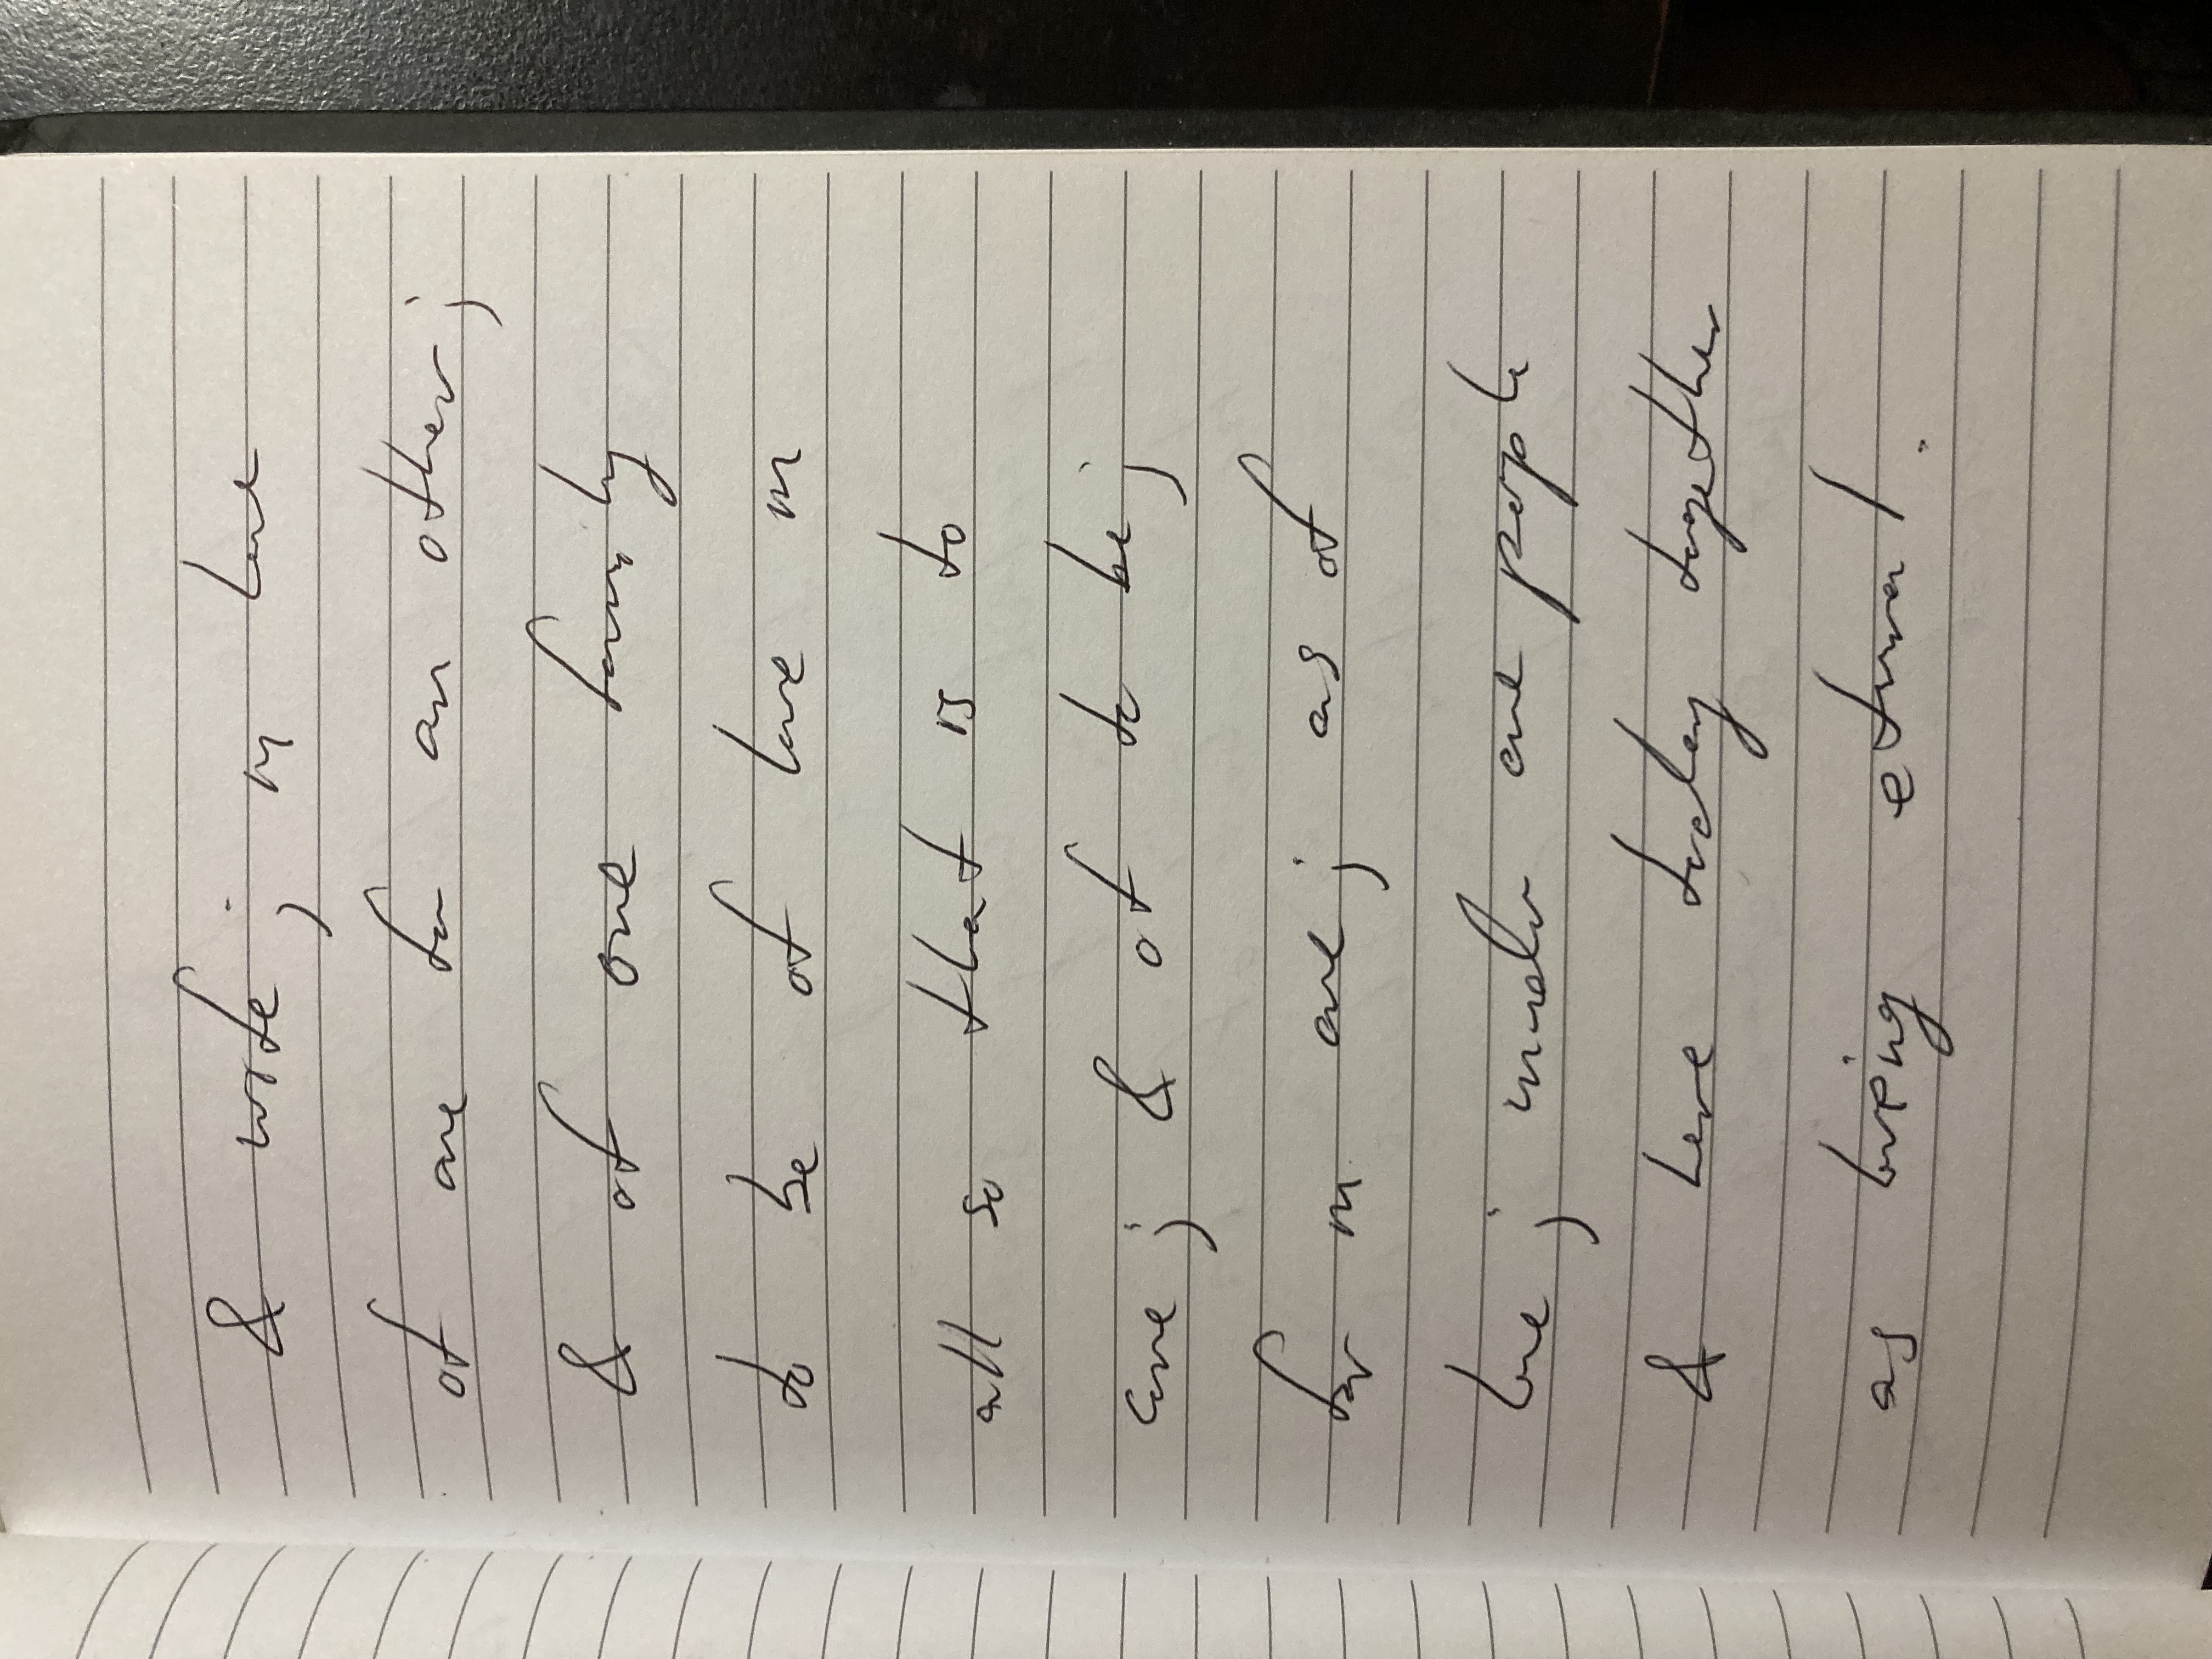 & wife; in love
of one for an other;
& of one family
to be of love in
all so that is to
come; & of to be;
for in one; as of
love; under one people
& here today together
as loving eternal.